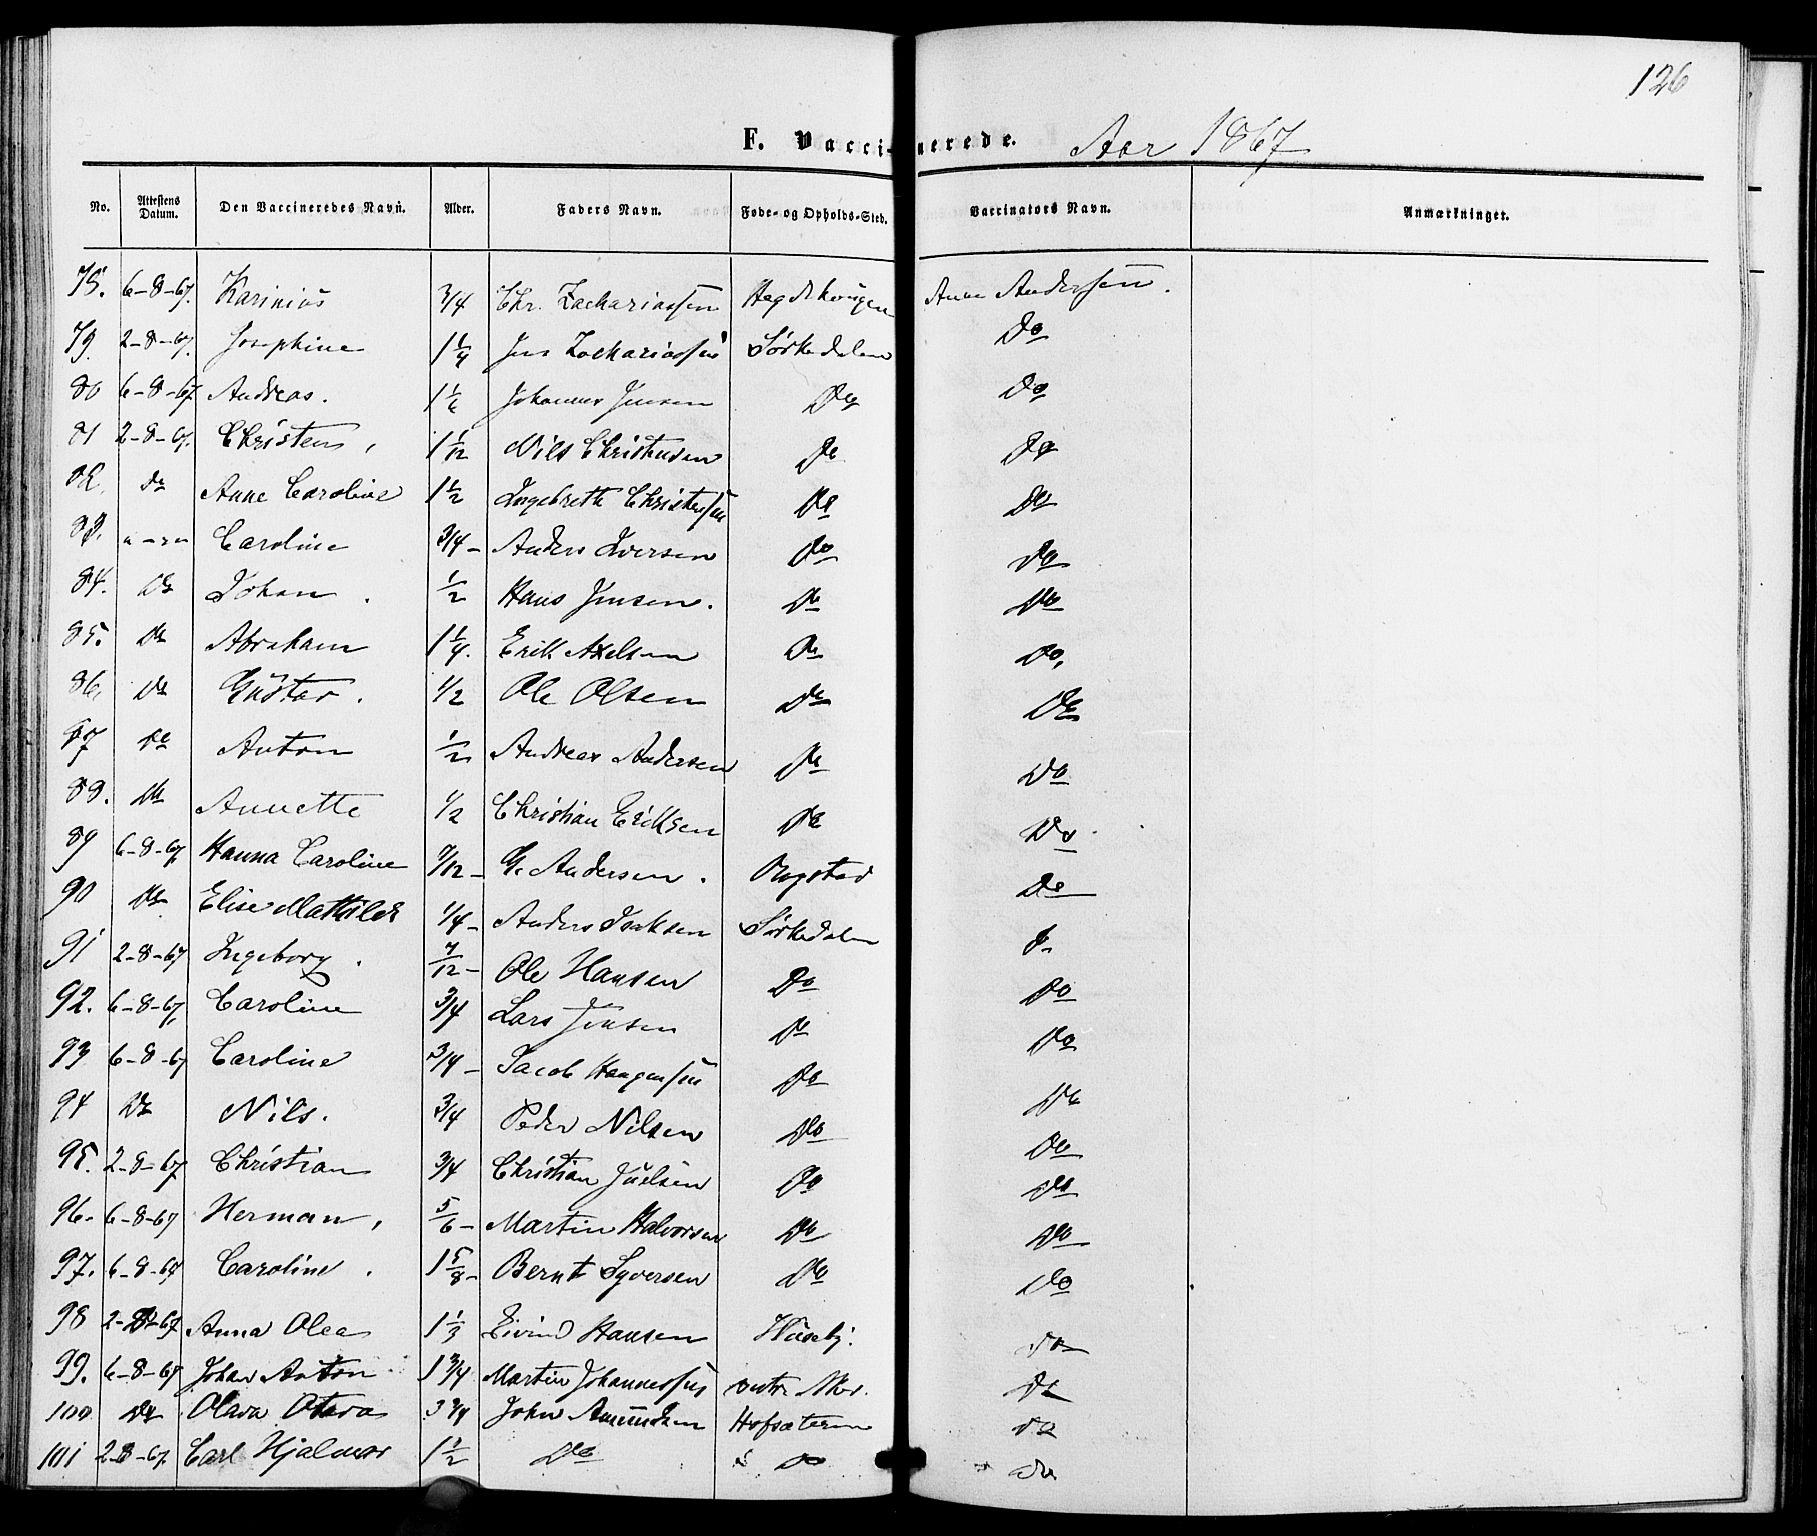 126
F. Vaccinerede. Aar 1867
No. Attestens Datum. Den Vaccineredes Navn. Alder. Faders Navn. Føde- og Opholds-Sted. Vaccinators Navn. Anmærkninger.
6-8-67. Karinius 3/4 Chr. Zachariassen Anne Andersen.
79. 2-8-67. Josephine 1 1/4 Jens Zachariassen Sörkedalen Do
80 6-8-67 Andreas. 1 1/6 Johannes Jensen Do Do
81 2-8-67. Christen, 1 1/12 Nils Christensen Do Do
82. Do Anne Caroline 1 1/2 Ingebreth Christensen Do Do
83. Caroline 3/4 - Anders Iversen Do Do
84. Do Johan. 1/2 Hans Jensen. Do Do
85. Do Abraham 1 1/4. Erik Axelsen Do Do,
86, Do Gustav. 1/2 Ole Olsen Do Do
87 Do Anton 1/2 Andreas Andersen Do Do
88. Do Annette 1/2 Christian Eriksen Do Do
89 6-8-67 Hanna Caroline 7/12 - G. Andersen. Do
90 Do Elise Mathilde 1/4 - Anders Isaksen Sörkedalen Do
91 2-8-67 Ingeborg. 7/12 - Ole Hansen Do Do
92. 6-8-67, Caroline 3/4 Lars Jensen Do Do
93 6-8-67 Caroline 3/4 - Jacob Haagensen Do Do
94 Do Nils. 3/4 Peder Nilsen Do Do
95. 2-8-67 Christian 3/4 Christian Juelsen Do Do
96. 6-8-67 Herman, 5/6 - Martin Halvorsen Do Do
97. 6-8-67 Caroline. 1 5/8 - Bernt Syversen Do Do
98 2-8-67 Anna Olea 1 1/3 Eivind Hansen Huseby. Do
99. 6-8-67 Johan Anton 1 3/4 Martin Johannessen Do
100 Do Olava Otava 3 3/4 John Amundsen Hofsæteren Do
101 2-8-67. Carl Hjalmar 1 1/2 Do Do Do